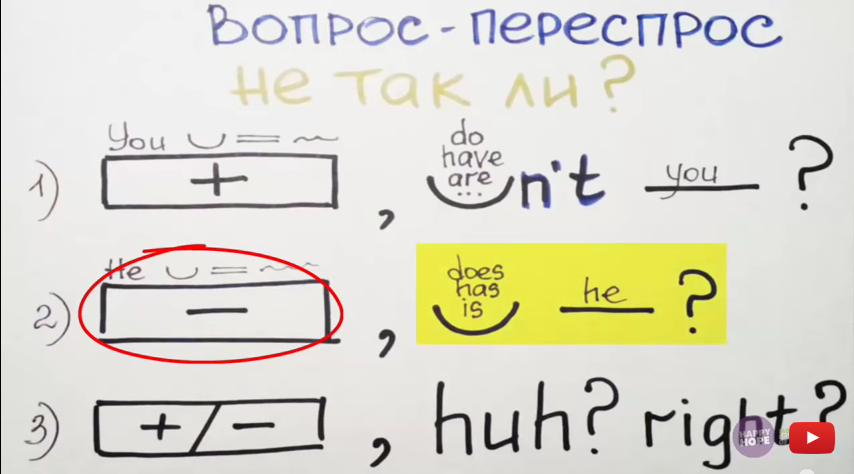 Вопрос-переспрос
не так ли?
You
do
have
are
...
1) + , n't you ?
He
does
has
is
2) — , he ?
3) +/— , huh? right?
HAPPY
HOPE